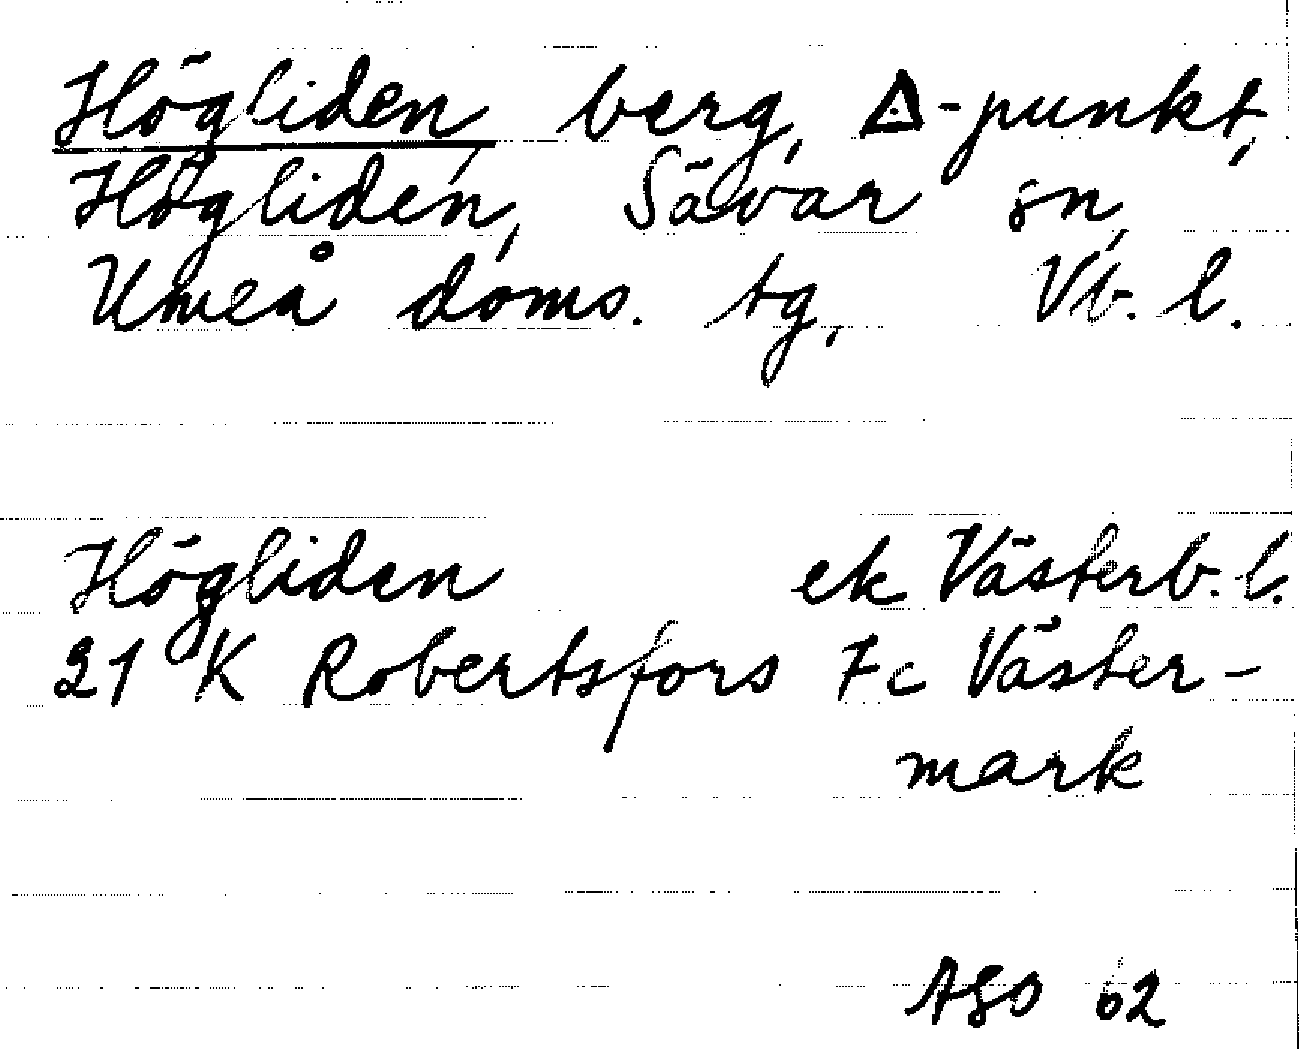 Högliden, berg, △-punkt,
Högliden, Sävar sn,
Umeå doms. tg, Vb. l.
Högliden ek Västerb. l.
21 K Robertsfors 7c Väster-
mark
ASO 62